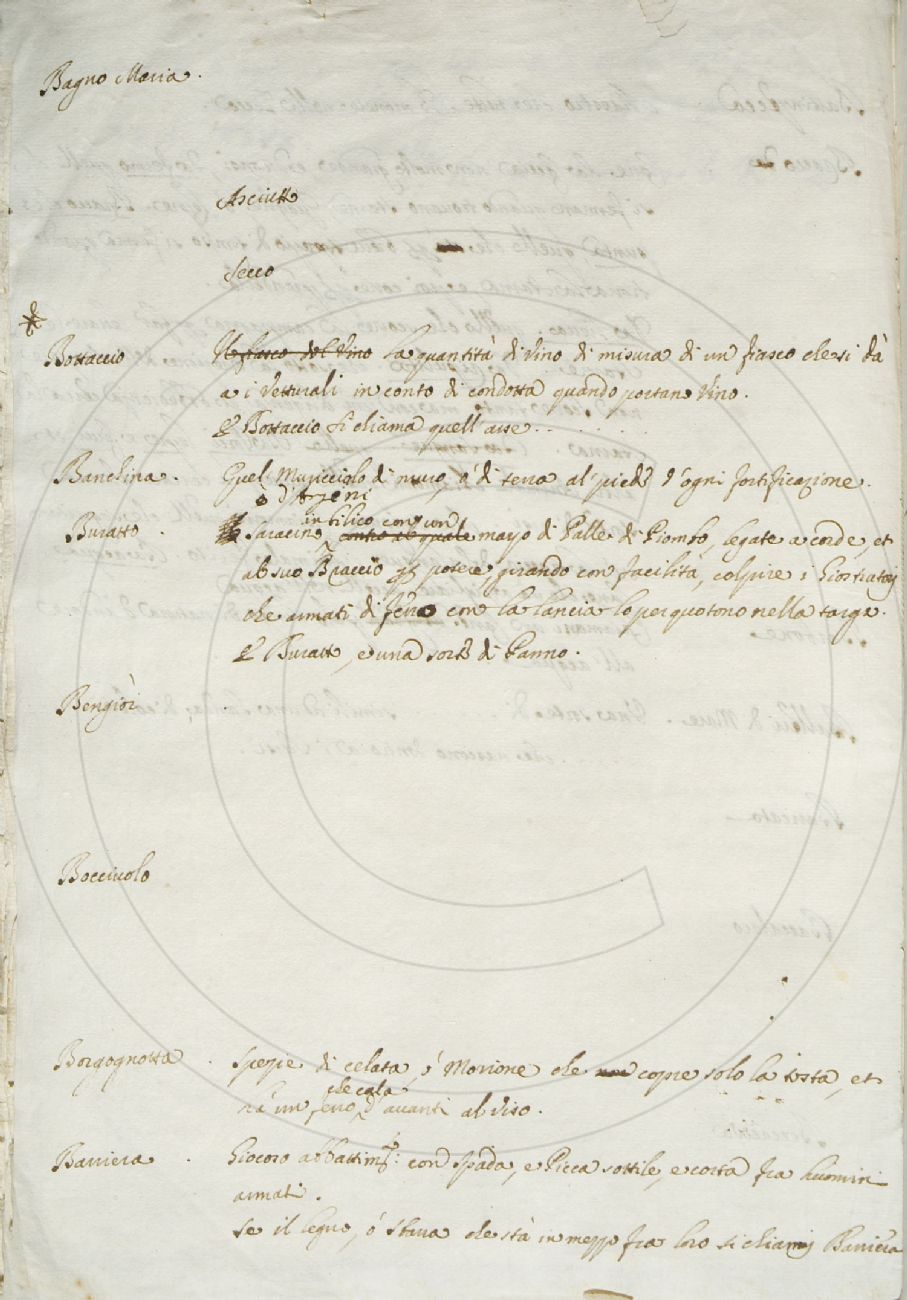 Bagno Maria.
Asciutto
Secco
Bottaccio Il fiasco del Vino La quantità di vino di misura di un fiasco che si dà
a i Vetturali in conto di condotta quando portano Vino.
E Bottaccio si chiama quell'
Banchina. Quel Muricciolo di muro, ó di terra al piede d'ogni fortificazione.
o d'Argeni
in bilico con un
Buratto. Saracino contro al quale mazzo di Palle di Piombo, legate a corde, et
al suo Braccio potere, girando con facilità, colpire i Giostratorj
che armati di con la lancia lo perquotono nella targa.
E Buratto, e una sorte di Panno.
Bengiòi
Bocciuolo
Borgognotta. Spezie di celata, ó Morione che non copre solo la testa, et
che cala
hà un ferro d'avanti al viso.
Barriera. Giocoso abbattimto: con Spada, e Picca sottile, e corta fra huomini
armati.
Se il legno, ó Sbarra che stà in mezzo fra loro si chiamj Barriera